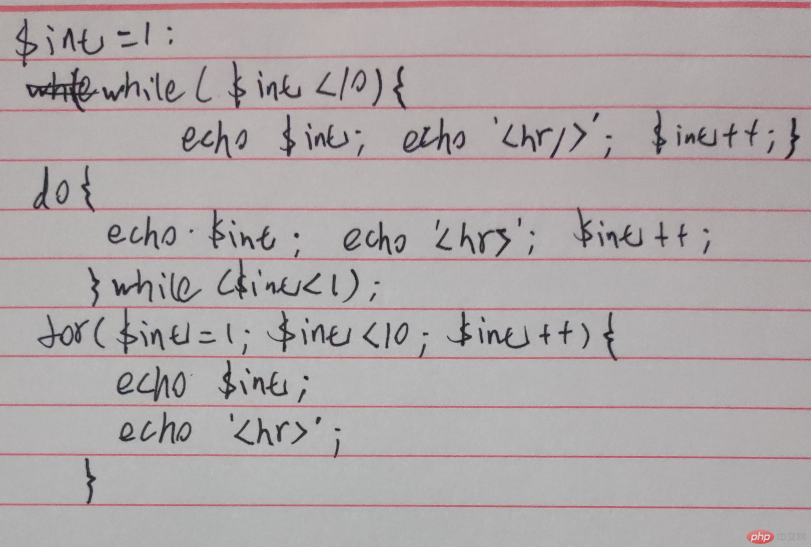 $int = 1;
while ( $int < 10) {
echo $int; echo '<hr/>'; $int++; }
do {
echo $int; echo '<hr>'; $int++;
} while ($int<1);
for ( $int = 1; $int < 10; $int++) {
echo $int;
echo '<hr>';
}
php